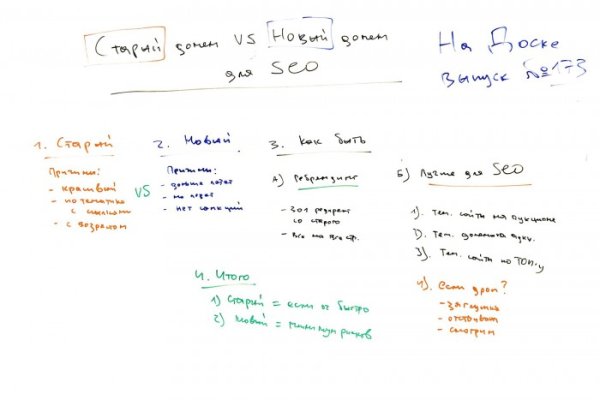 Старый домен VS Новый домен
для SEO
На Доске
выпуск №173
1. Старый
Причины:
- красивый
- по тематике
с ссылками
- с возрастом
VS
2. Новый
Причины:
- дольше
- не
- нет санкций
3. Как быть
А) Ребрендинг
- 301 редирект
со старого
- Все на все стр.
Б) Лучше для SEO
1). Тем. сайты на аукционе
2). Тем. домены
3). Тем. сайты по ТОП-у
4). если дроп?
- загрузили
- отстоялись
- смотрим
4. Итого
1) Старый = если ог быстро
2) Новый = минимум рисков